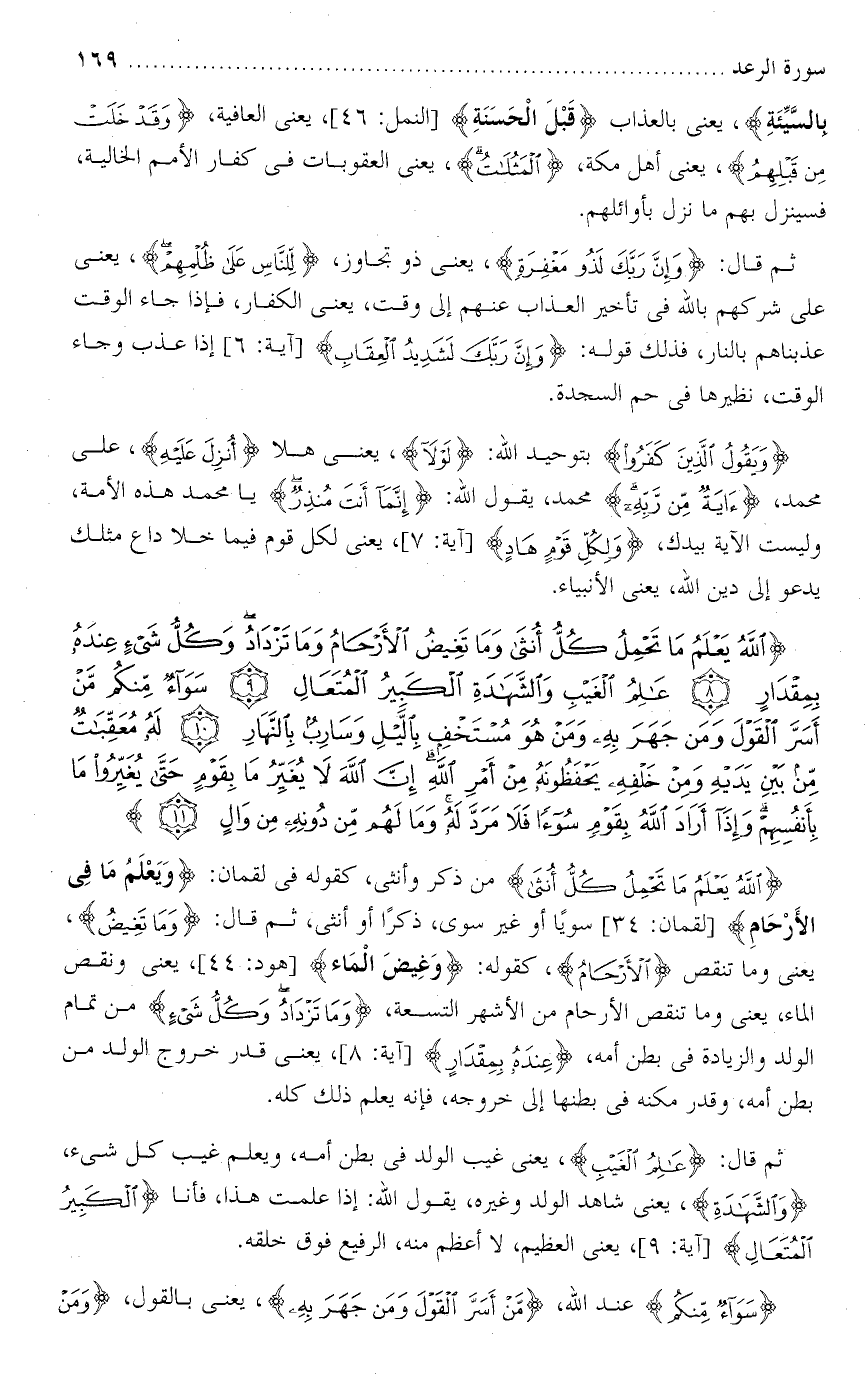 سورة الرعد ........................................................................ ١٦٩
بِالسَّيِّئَةِ﴾، يعنى بالعذاب ﴿قَبْلَ الْحَسَنَةِ﴾ [النمل: ٤٦]، يعنى العافية، ﴿وَقَدْ خَلَتْ
مِن قَبْلِهِمُ﴾، يعنى أهل مكة، ﴿الْمَثُلَاتُ﴾، يعنى العقوبات فى كفار الأمم الخالية،
فسينزل بهم ما نزل بأوائلهم.
ثم قال: ﴿وَإِنَّ رَبَّكَ لَذُو مَغْفِرَةٍ﴾، يعنى ذو تجاوز، ﴿لِّلنَّاسِ عَلَى ظُلْمِهِمْ﴾، يعنى
على شركهم بالله فى تأخير العذاب عنهم إلى وقت، يعنى الكفار، فإذا جاء الوقت
عذبناهم بالنار، فذلك قوله: ﴿وَإِنَّ رَبَّكَ لَشَدِيدُ الْعِقَابِ﴾ [آية: ٦] إذا عذب وجاء
الوقت، نظيرها فى حم السجدة.
﴿وَيَقُولُ الَّذِينَ كَفَرُواْ﴾ بتوحيد الله: ﴿لَوْلَآ﴾، يعنى هلا ﴿أُنزِلَ عَلَيْهِ﴾، على
محمد، ﴿ءَايَةٌ مِّن رَّبِّهِۦٓ﴾ محمد، يقول الله: ﴿إِنَّمَآ أَنتَ مُنذِرٌ﴾ يا محمد هذه الأمة،
وليست الآية بيدك، ﴿وَلِكُلِّ قَوْمٍ هَادٍ﴾ [آية: ٧]، يعنى لكل قوم فيما خلا داع مثلك
يدعو إلى دين الله، يعنى الأنبياء.
﴿اللَّهُ يَعْلَمُ مَا تَحْمِلُ كُلُّ أُنثَىٰ وَمَا تَغِيضُ الْأَرْحَامُ وَمَا تَزْدَادُ وَكُلُّ شَيْءٍ عِندَهُ
بِمِقْدَارٍ ٨ عَالِمُ الْغَيْبِ وَالشَّهَادَةِ الْكَبِيرُ الْمُتَعَالِ ٩ سَوَآءٌ مِّنكُم مَّنْ
أَسَرَّ الْقَوْلَ وَمَن جَهَرَ بِهِۦ وَمَنْ هُوَ مُسْتَخْفٍ بِالَّيْلِ وَسَارِبٌ بِالنَّهَارِ ١٠ لَهُۥ مُعَقِّبَاتٌ
مِّنۢ بَيْنِ يَدَيْهِ وَمِنْ خَلْفِهِۦ يَحْفَظُونَهُۥ مِنْ أَمْرِ اللَّهِ إِنَّ اللَّهَ لَا يُغَيِّرُ مَا بِقَوْمٍ حَتَّىٰ يُغَيِّرُواْ مَا
بِأَنفُسِهِمْ وَإِذَآ أَرَادَ اللَّهُ بِقَوْمٍ سُوٓءًا فَلَا مَرَدَّ لَهُۥ وَمَا لَهُم مِّن دُونِهِۦ مِن وَالٍ ١١ ﴾
﴿اللَّهُ يَعْلَمُ مَا تَحْمِلُ كُلُّ أُنثَىٰ﴾ من ذكر وأنثى، كقوله فى لقمان: ﴿وَيَعْلَمُ مَا فِى
الأَرْحَامِ﴾ [لقمان: ٣٤] سويًا أو غير سوى، ذكرًا أو أنثى، ثم قال: ﴿وَمَا تَغِيضُ﴾،
يعنى وما تنقص ﴿الْأَرْحَامُ﴾، كقوله: ﴿وَغِيضَ الْمَاء﴾ [هود: ٤٤]، يعنى ونقص
الماء، يعنى وما تنقص الأرحام من الأشهر التسعة، ﴿وَمَا تَزْدَادُ وَكُلُّ شَيْءٍ﴾ من تمام
الولد والزيادة فى بطن أمه، ﴿عِندَهُ بِمِقْدَارٍ﴾ [آية: ٨]، يعنى قدر خروج الولد من
بطن أمه، وقدر مكثه فى بطنها إلى خروجه، فإنه يعلم ذلك كله.
ثم قال: ﴿عَالِمُ الْغَيْبِ﴾، يعنى غيب الولد فى بطن أمه، ويعلم غيب كل شىء،
﴿وَالشَّهَادَةِ﴾، يعنى شاهد الولد وغيره، يقول الله: إذا علمت هذا، فأنا ﴿الْكَبِيرُ
الْمُتَعَالِ﴾ [آية: ٩]، يعنى العظيم، لا أعظم منه، الرفيع فوق خلقه.
﴿سَوَآءٌ مِّنكُم﴾ عند الله، ﴿مَّنْ أَسَرَّ الْقَوْلَ وَمَن جَهَرَ بِهِۦ﴾، يعنى بالقول، ﴿وَمَنْ